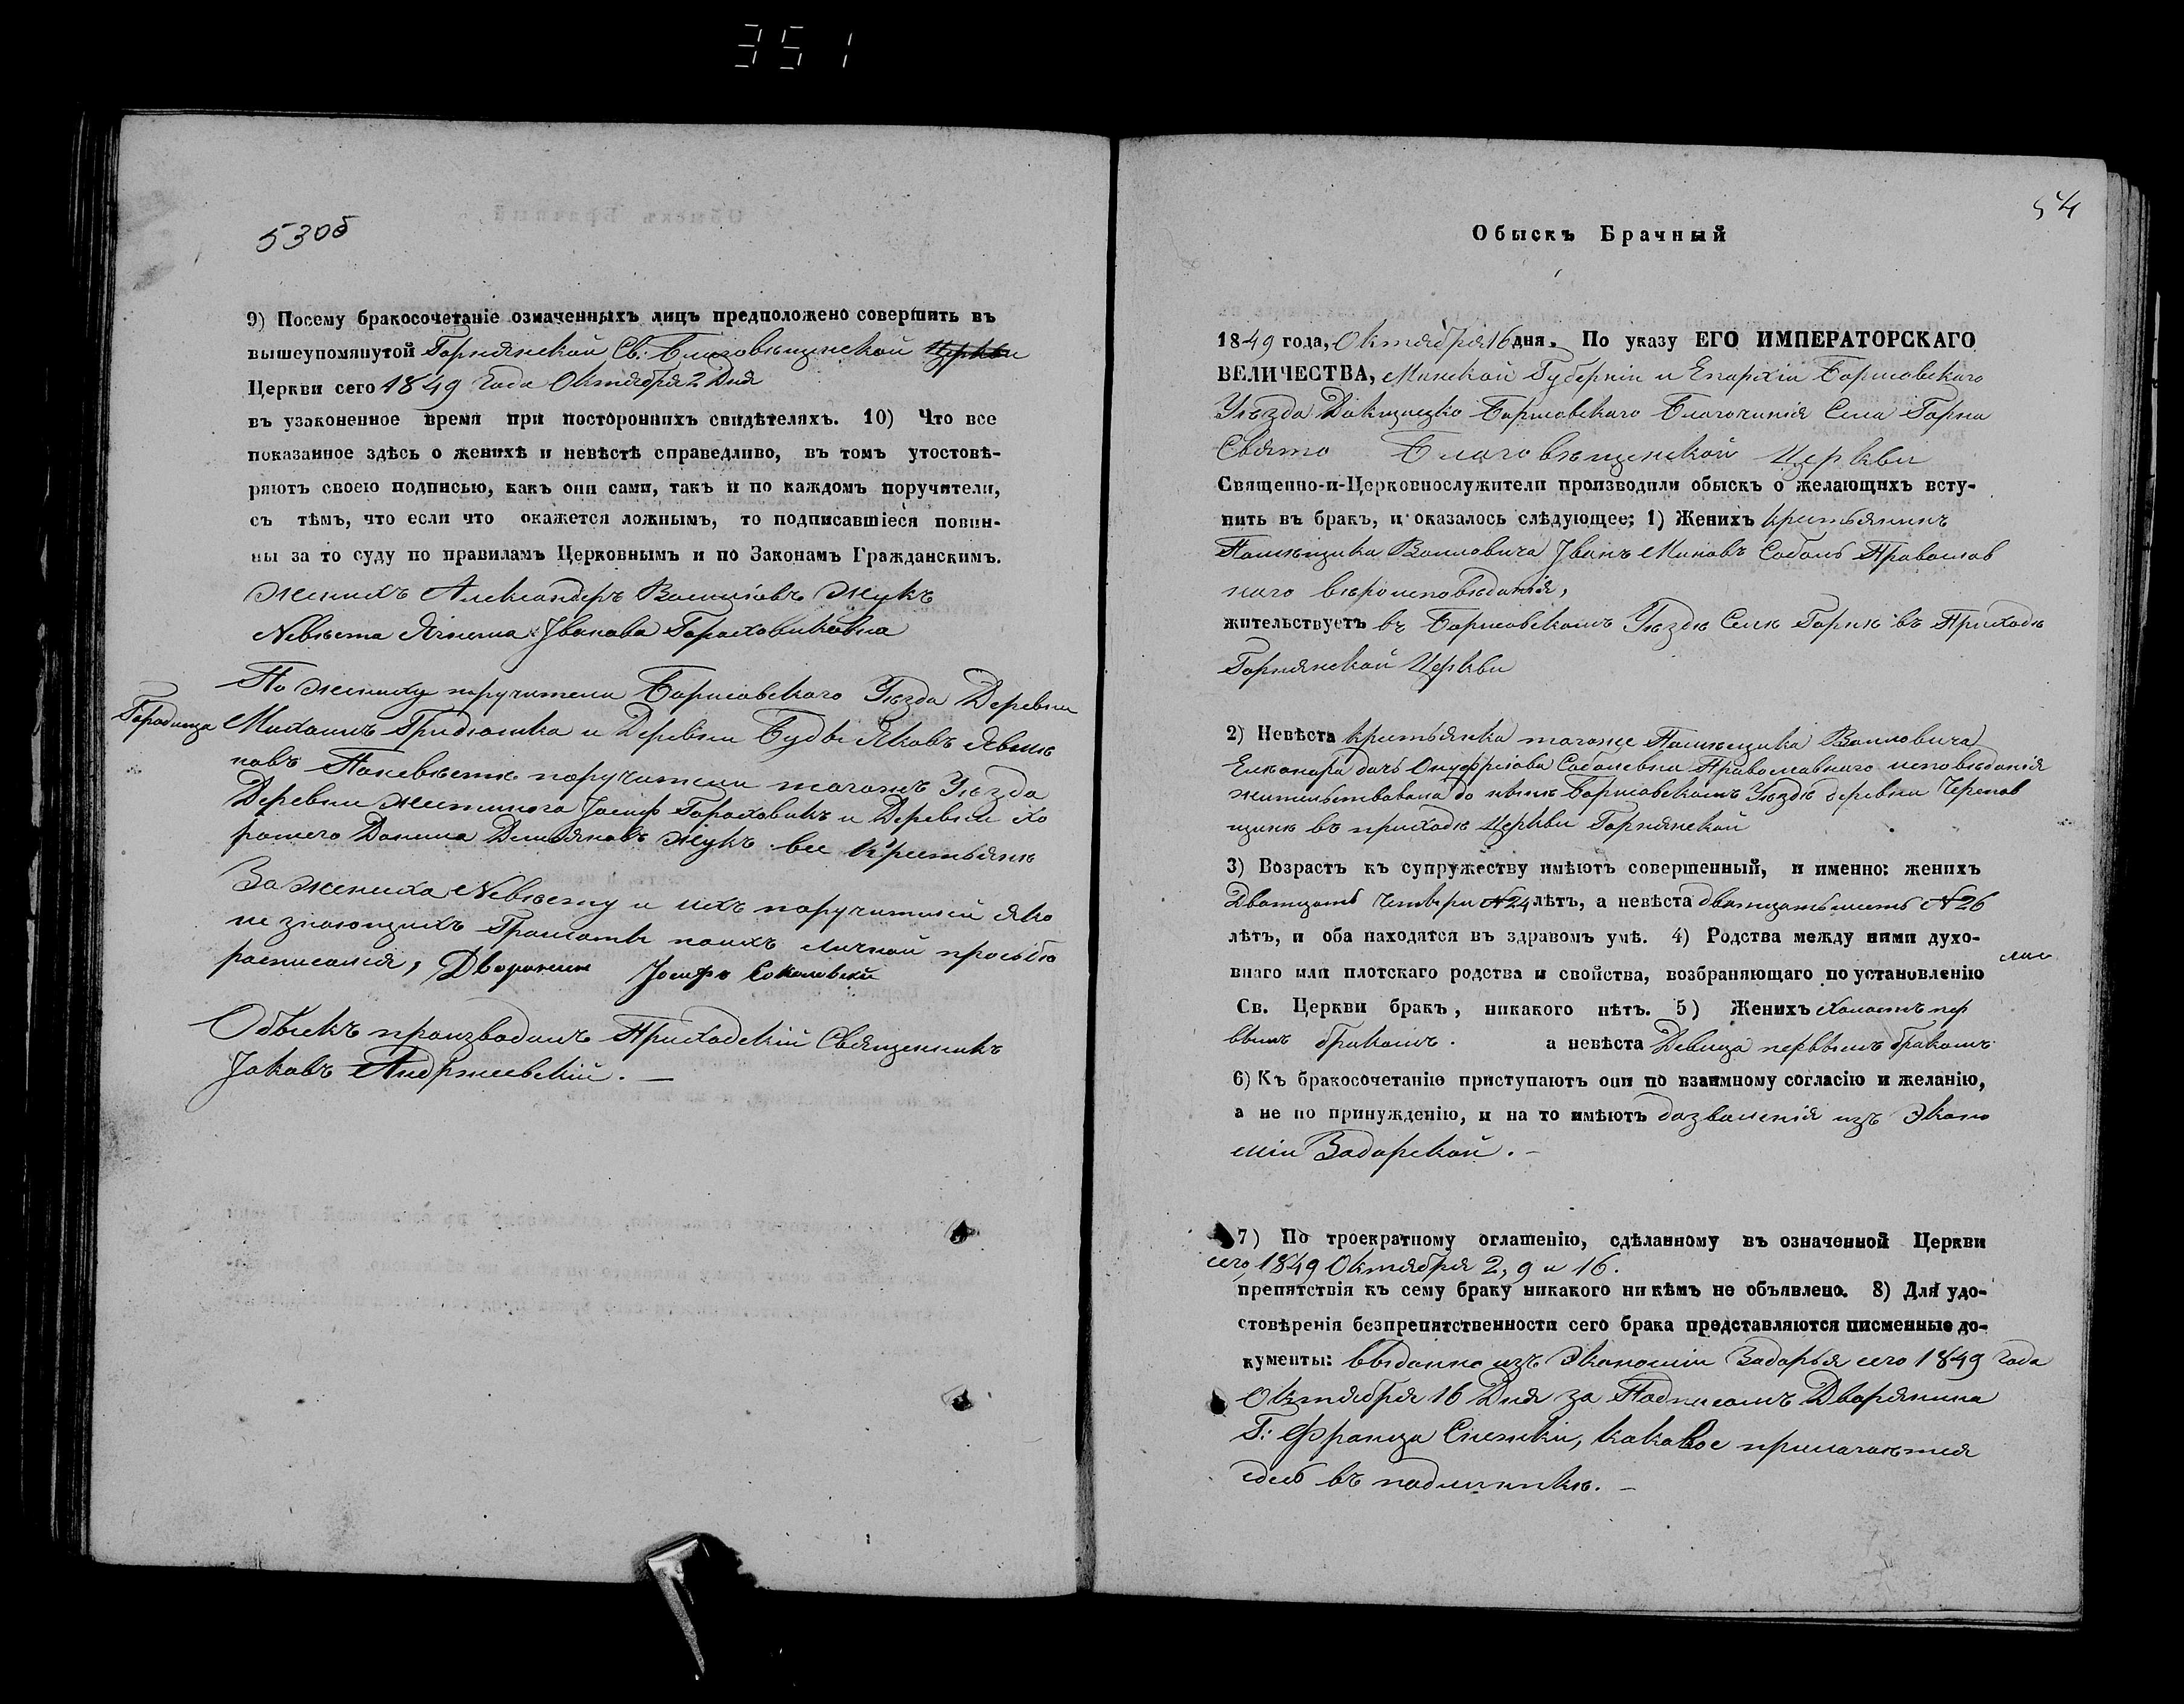 351
53об
9) Посему бракосочетаніе означенныхъ лицъ предположено совершить въ
вышеупомянутой Горнянской Св: Благовѣщенской Церкви
Церкви сего 1849 Года Октября 2 Дня
въ узаконенное время при постороннихъ свидѣтеляхъ. 10) Что все
показанное здѣсь о женихѣ и невѣстѣ справедливо, въ томъ утостовѣ-
ряютъ своею подписью, какъ они сами, такъ и по каждомъ поручители,
съ тѣмъ, что если что окажется ложнымъ, то подписавшіеся повин-
ны за то суду по правиламъ Церковнымъ и по Законамъ Гражданскимъ.
Женихъ Александеръ Василіовъ Жукъ
Невѣста Іванова Гораховиковна
По жениху поручители Борисовскаго Уѣзда Деревни
Городища Михаилъ Гридюшка и Деревни Буды Яковъ
новъ Поневѣсте поручители тогожъ Уѣзда
Деревни Іосиф Гораховикъ и Деревни Хо
рошего Данила Демьяновъ Жукъ все Крестьяне
За жениха Невѣсту и ихъ поручителей яко
не знающихъ Грамоты поихъ личной просьбѣ
расписался, Дворянин Іосифъ Соколовскій
Обыскъ производилъ Приходскій Священникъ
Іаковъ Андржеевскій. —
54
Обыскъ Брачный
1849 года, Октября 16 дня. По указу ЕГО ИМПЕРАТОРСКАГО
ВЕЛИЧЕСТВА, Минской Губерніи и Епархіи Борисовскаго
Уѣзда Докшицко Борисовскаго Благочинія Села Горна
Свято Благовѣщенской Церкви
Священно-и-Церковнослужители производили обыскъ о желающихъ всту-
пить въ бракъ, и оказалось слѣдующее; 1) Женихъ Крестьянинъ
Помѣщика Воиловича Іванъ Миновъ Соболь Православ
наго вѣроисповѣданія,
жительствуетъ въ Борисовскомъ Уѣздѣ Селѣ Горнѣ въ Приходѣ
Горнянской Церкви
2) Невѣста Крестьянка тогоже Помѣщика Воиловича
Елѣонора дочь Онуфріова Соболевна Православнаго исповѣданія
жительствовала до нынѣ Борисовскомъ Уѣздѣ деревни Черепов
щинѣ въ приходѣ Церкви Горнянской
3) Возрастъ къ супружеству имѣютъ совершенный, и именно: женихъ
Дватцать четыри №24 лѣтъ, а невѣста дватцать шесть №26
лѣтъ, и оба находятся въ здравомъ умѣ. 4) Родства между ними духо-
внаго или плотскаго родства и свойства, возбраняющаго по установленію
Св. Церкви бракъ, никакого нѣтъ. 5) Женихъ холостъ пер
вымъ бракомъ. а невѣста Девица первымъ бракомъ
6) Къ бракосочетанію приступаютъ они по взаимному согласію и желанію,
а не по принужденію, и на то имѣютъ дозволенія изъ Эконо
міи Задорской. —
7) По троекратному оглашенію, сдѣланному въ означенной Церкви
сего, 1849 Октября 2, 9 и 16.
препятствія къ сему браку никакого ни кѣмъ не объявлено. 8) Для удо-
стовѣренія безпрепятственности сего брака представляются писменные до-
кументы: выданно изъ Экономіи Задорья сего 1849 Года
Октября 16 Дня за Подписомъ Дворянина
Г: Франца какавое прилагаѣтся
сдесь въ подлинникѣ. —